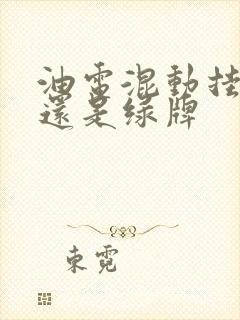 油電混動挂
還是绿牌
東霓